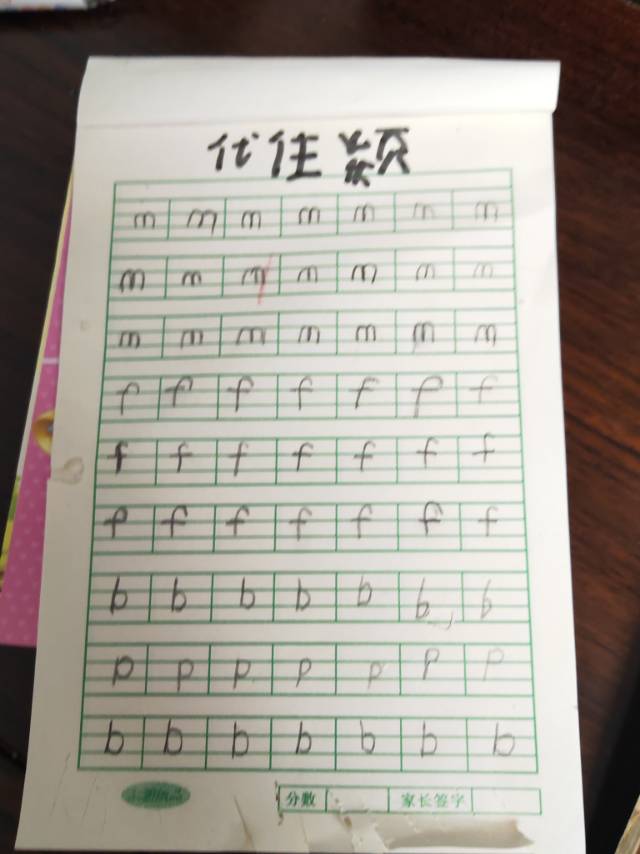 代佳颖
m m m m m m m
m m m m m m m
m m m m m m m
f f f f f f f
f f f f f f f
f f f f f f f
b b b b b b b
p p p p p p p
b b b b b b b
分数 家长签字